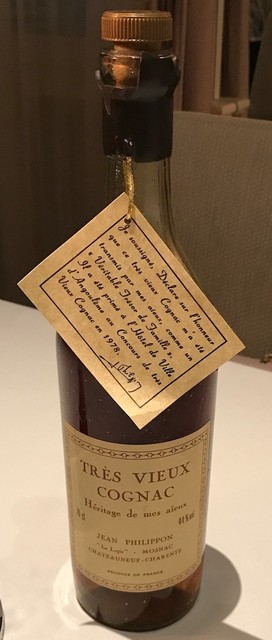 Je soussigné, Déclare sur l'honneur
que ce très vieux Cognac m'a été
transmis par mes aïeux, comme un
« Véritable Trésor de Famille ».
Il a été primé à l'Hôtel de Ville
d'Angoulême au Concours de très
Vieux Cognac en 1978.
TRÈS VIEUX
COGNAC
Héritage de mes aïeux
JEAN PHILIPPON
"Le Logis" - MOSNAC
CHATEAUNEUF-CHARENTE
PRODUCE OF FRANCE